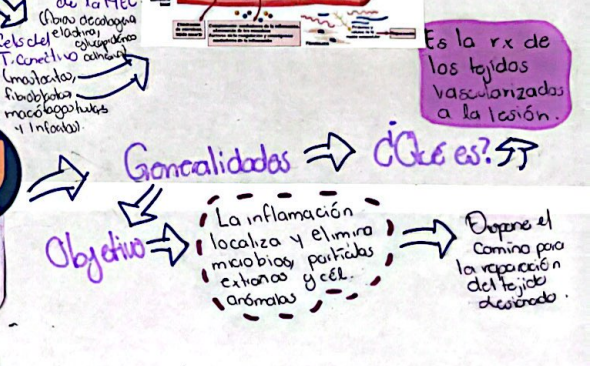 de la MEC
(fibras de colageno
elastina,
Cels del
T. Conectivo
(mastocitos,
fibroblastos
macrófagos
y linfocitos).
Es la rx de
los tejidos
vascularizados
a la lesión.
Generalidades
¿Qué es?
Objetivo
La inflamación
localiza y elimina
microbios, partículas
extrañas y cél.
anómalas
Dispone el
camino para
la reparación
del tejido
lesionado.